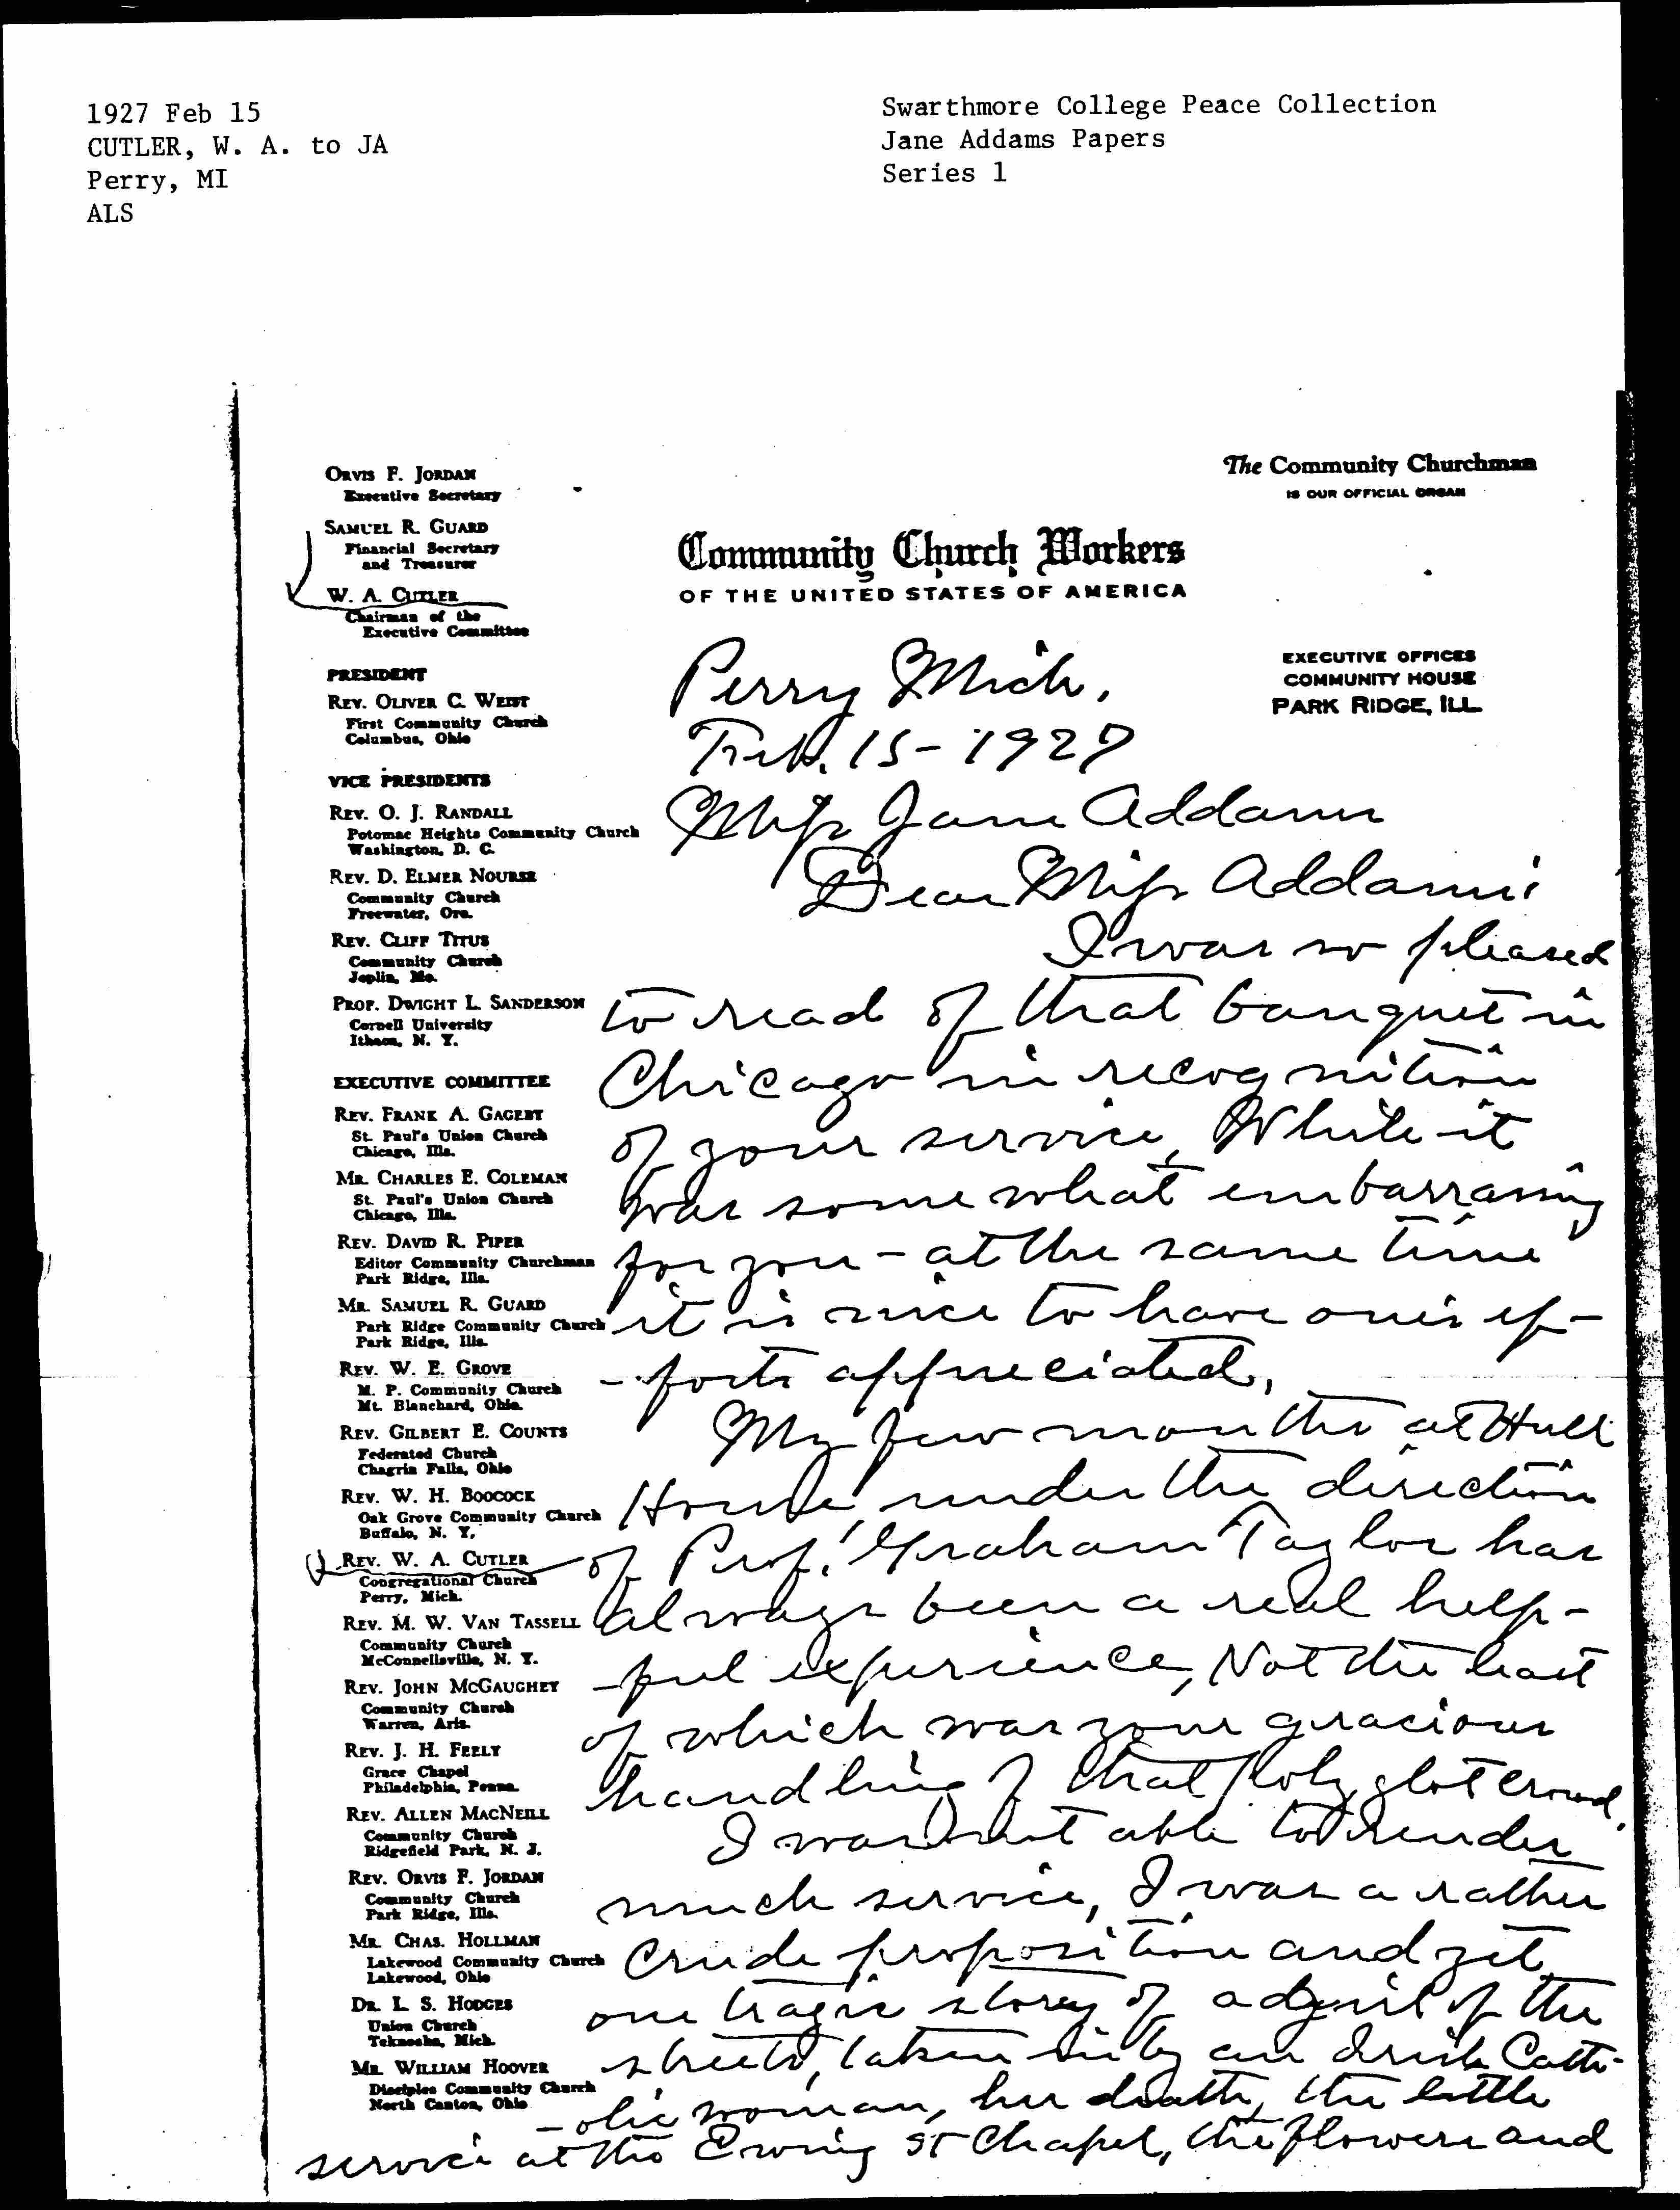 1927 Feb 15
CUTLER, W. A. to JA
Perry, MI
ALS
Swarthmore College Peace Collection
Jane Addams Papers
Series 1
ORVIS F. JORDAN
Executive Secretary
SAMUEL R. GUARD
Financial Secretary
and Treasurer
W. A. CUTLER
Chairman of the
Executive Committee
The Community Churchman
IS OUR OFFICIAL ORGAN
Community Church Workers
OF THE UNITED STATES OF AMERICA
EXECUTIVE OFFICES
COMMUNITY HOUSE
PARK RIDGE, ILL.
PRESIDENT
REV. OLIVER C. WEIST
First Community Church
Columbus, Ohio
VICE PRESIDENTS
REV. O. J. RANDALL
Potomac Heights Community Church
Washington, D. C.
REV. D. ELMER NOURSE
Community Church
Freewater, Ore.
REV. CLIFF TITUS
Community Church
Joplin, Mo.
PROF. DWIGHT L. SANDERSON
Cornell University
Ithaca, N. Y.
EXECUTIVE COMMITTEE
REV. FRANK A. GAGEBY
St. Paul's Union Church
Chicago, Ills.
MR. CHARLES E. COLEMAN
St. Paul's Union Church
Chicago, Ills.
REV. DAVID R. PIPER
Editor Community Churchman
Park Ridge, Ills.
MR. SAMUEL R. GUARD
Park Ridge Community Church
Park Ridge, Ills.
REV. W. E. GROVE
M. P. Community Church
Mt. Blanchard, Ohio.
REV. GILBERT E. COUNTS
Federated Church
Chagrin Falls, Ohio
REV. W. H. BOOCOCK
Oak Grove Community Church
Buffalo, N. Y.
REV. W. A. CUTLER
Congregational Church
Perry, Mich.
REV. M. W. VAN TASSELL
Community Church
McConnellsville, N. Y.
REV. JOHN MCGAUGHEY
Community Church
Warren, Ariz.
REV. J. H. FEELY
Grace Chapel
Philadelphia, Penna.
REV. ALLEN MACNEILL
Community Church
Ridgefield Park, N. J.
REV. ORVIS F. JORDAN
Community Church
Park Ridge, Ills.
MR. CHAS. HOLLMAN
Lakewood Community Church
Lakewood, Ohio
DR. L. S. HODGES
Union Church
Tekonsha, Mich.
MR. WILLIAM HOOVER
Disciples Community Church
North Canton, Ohio
Perry Mich,
Feb. 15- 1927
Miss Jane Addams
Dear Miss Addams:
I was so pleased
to read of that banquet in
Chicago in recognition
of your service, While it
was somewhat embarrassing
for you - at the same time
it is nice to have one's ef-
-forts appreciated,
My few months at Hull
House, under the direction
of Prof. Graham Taylor has
always been a real help-
-ful experience, Not the least
of which was your gracious
handling of that polyglot crowd.
I was not able to render
much service, I was a rather
crude proposition and yet
one tragic story of a girl of the
streets, taken in by an Irish Cath-
-olic woman, her death, the little
service at the Ewing St Chapel, the flowers and